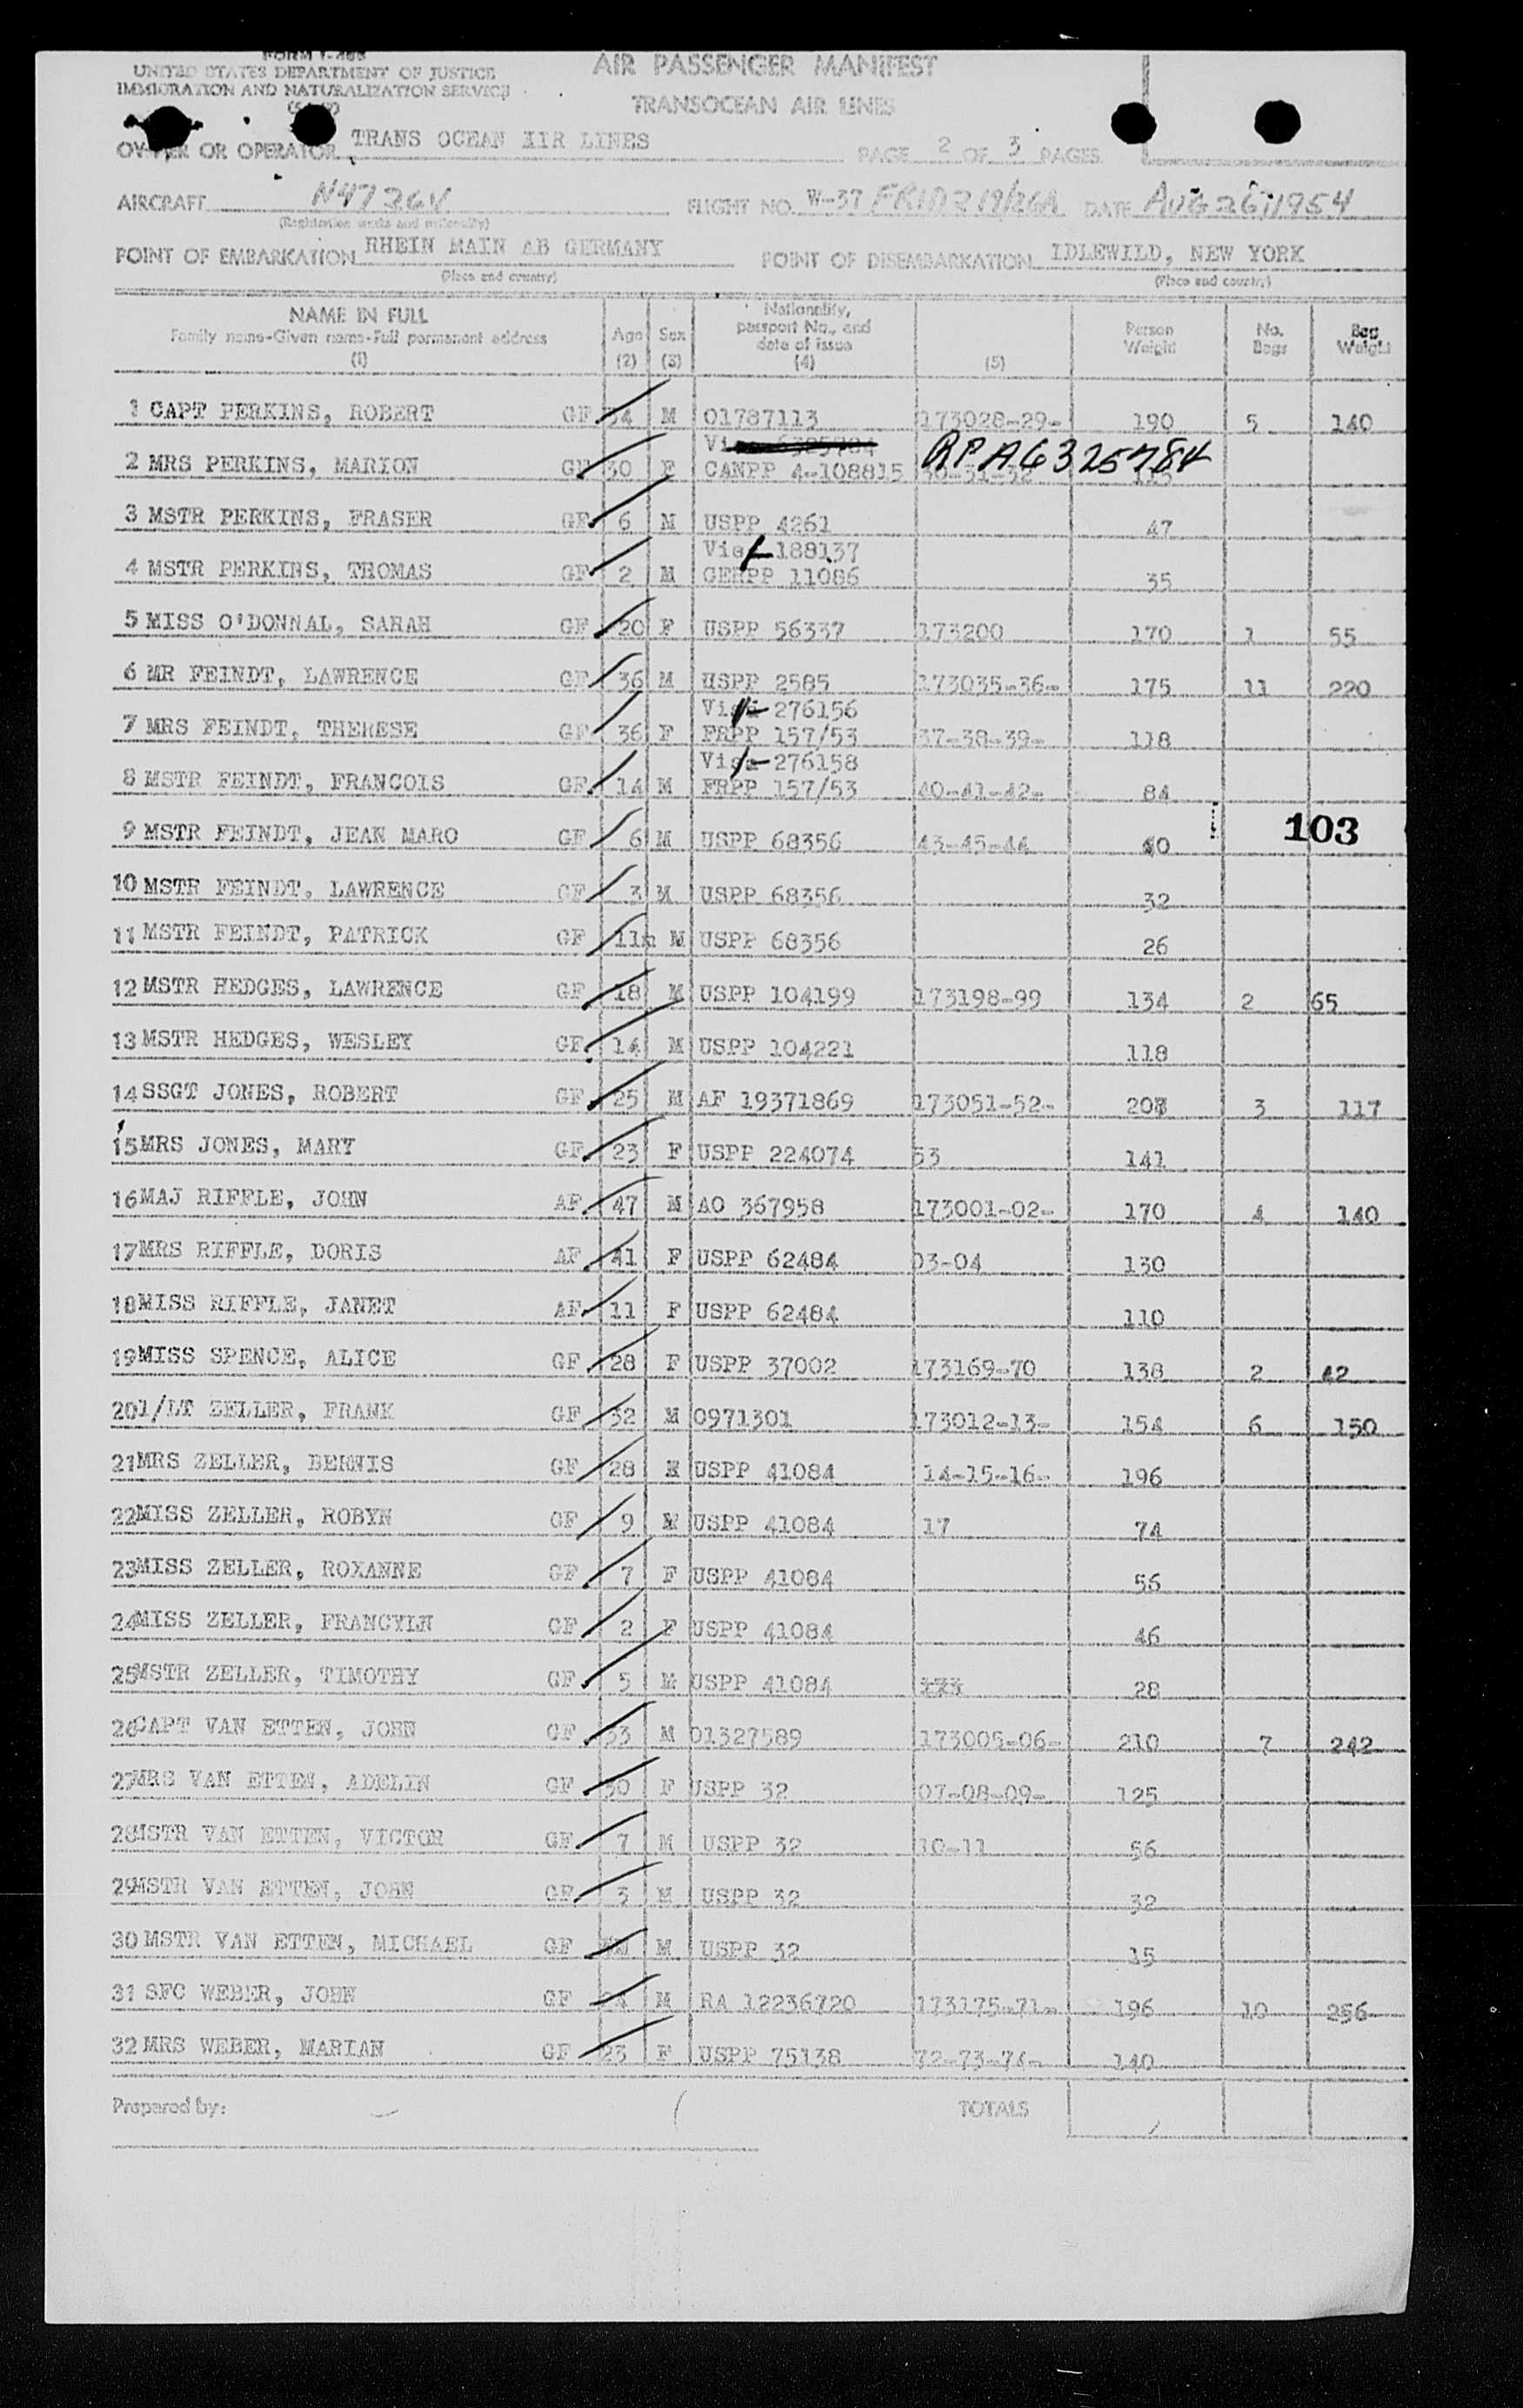 FORM I-466
UNITED STATES DEPARTMENT OF JUSTICE
IMMIGRATION AND NATURALIZATION SERVICE
AIR PASSENGER MANIFEST
TRANSOCEAN AIR LINES
OWNER OR OPERATOR TRANS OCEAN AIR LINES PAGE 2 OF 3 PAGES
AIRCRAFT FLIGHT NO. W-37 DATE AUG 26, 1954
(Registration marks and nationality)
POINT OF EMBARKATION RHEIN MAIN AB GERMANY POINT OF DISEMBARKATION IDLEWILD, NEW YORK
(Place and country) (Place and country)
NAME IN FULL
Family name-Given name-Full permanent address
(1)
Age
(2)
Sex
(3)
Nationality,
passport No., and
date of issue
(4)
(5)
Person
Weight
No.
Bags
Bag
Weight
1 CAPT PERKINS, ROBERT GF 34 M 01787113 173028-29- 190 5 140
RPA6325784
2 MRS PERKINS, MARION GF 30 F CANPP 4-108815 30-31-32
3 MSTR PERKINS, FRASER GF 6 M USPP 4261 47
Visa 188137
4 MSTR PERKINS, THOMAS GF 2 M GERPP 11086 35
5 MISS O'DONNAL, SARAH GF 20 F USPP 56337 173200 170 1 55
6 MR FEINDT, LAWRENCE GF 36 M USPP 2585 173035-36- 175 11 220
Visa 276156
7 MRS FEINDT, THERESE GF 36 F FRPP 157/53 37-38-39- 118
Visa 276158
8 MSTR FEINDT, FRANCOIS GF 14 M FRPP 157/53 40-41-42- 84
103
9 MSTR FEINDT, JEAN MARO GF 6 M USPP 68356 43-45-44 40
10 MSTR FEINDT, LAWRENCE GF 3 M USPP 68356 32
11 MSTR FEINDT, PATRICK GF 11m M USPP 68356 26
12 MSTR HEDGES, LAWRENCE GF 18 M USPP 104199 173198-99 134 2 65
13 MSTR HEDGES, WESLEY GF 14 M USPP 104221 118
14 SSGT JONES, ROBERT GF 25 M AF 19371869 173051-52- 3 117
15 MRS JONES, MARY GF 23 F USPP 224074 53 141
16 MAJ RIFFLE, JOHN AF 47 M AO 367958 173001-02- 170 4 140
17 MRS RIFFLE, DORIS AF 41 F USPP 62484 03-04 130
18 MISS RIFFLE, JANET AF 11 F USPP 62484 110
19 MISS SPENCE, ALICE GF 28 F USPP 37002 173169-70 138 2 42
20 1/LT ZELLER, FRANK GF 32 M 0971301 173012-13- 154 6 150
21 MRS ZELLER, BERNIS GF 28 USPP 41084 14-15-16- 196
22 MISS ZELLER, ROBYN GF 9 USPP 41084 17 74
23 MISS ZELLER, ROXANNE GF 7 F USPP 41084 56
24 MISS ZELLER, FRANCYLN GF 2 F USPP 41084 46
25 MSTR ZELLER, TIMOTHY GF 5 M USPP 41084 28
26 CAPT VAN ETTEN, JOHN GF 33 M 01327589 173005-06- 210 7 242
27 MRS VAN ETTEN, ADELIN GF 30 F USPP 32 07-08-09- 125
28 MSTR VAN ETTEN, VICTOR GF 7 M USPP 32 10-11 56
29 MSTR VAN ETTEN, JOHN GF 3 M USPP 32 32
30 MSTR VAN ETTEN, MICHAEL GF M USPP 32 15
31 SFC WEBER, JOHN GF 24 M RA 12236720 173175-71- 196 10 256
32 MRS WEBER, MARIAN GF 23 F USPP 75138 72-73-74- 140
Prepared by: TOTALS